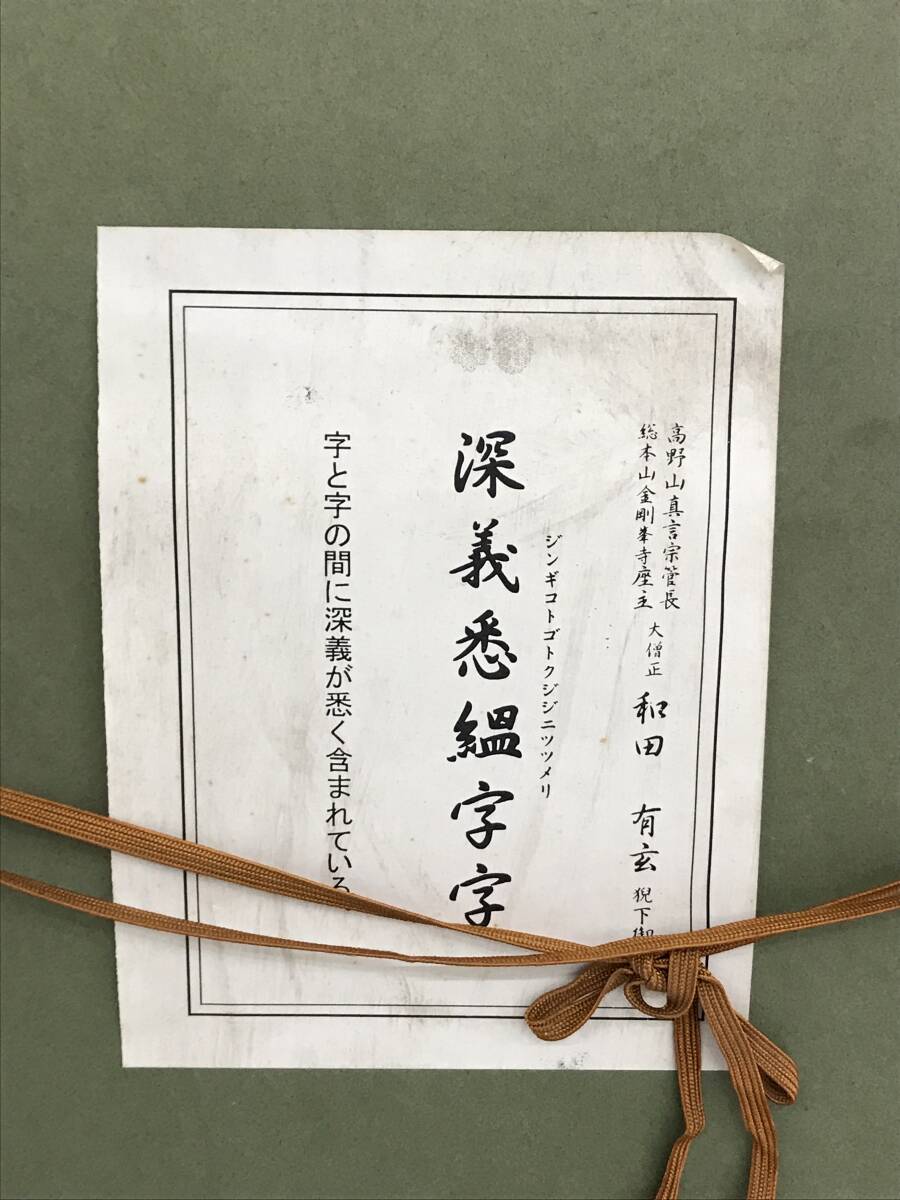 高野山真言宗管長
総本山金剛峯寺座主 大僧正 和田 有玄 猊下御
ジンギコトゴトクジジニツツメリ
深義悉縕字字
字と字の間に深義が悉く含まれている